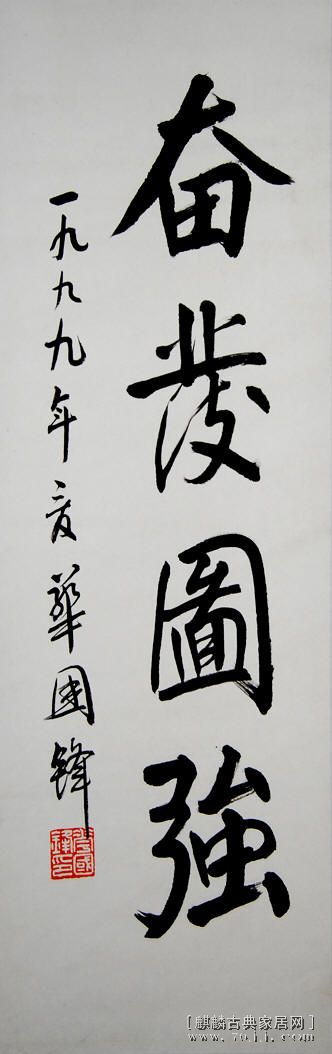 奋發圖強
一九九九年夏華國鋒
華國鋒印
[麒麟古典家居网]